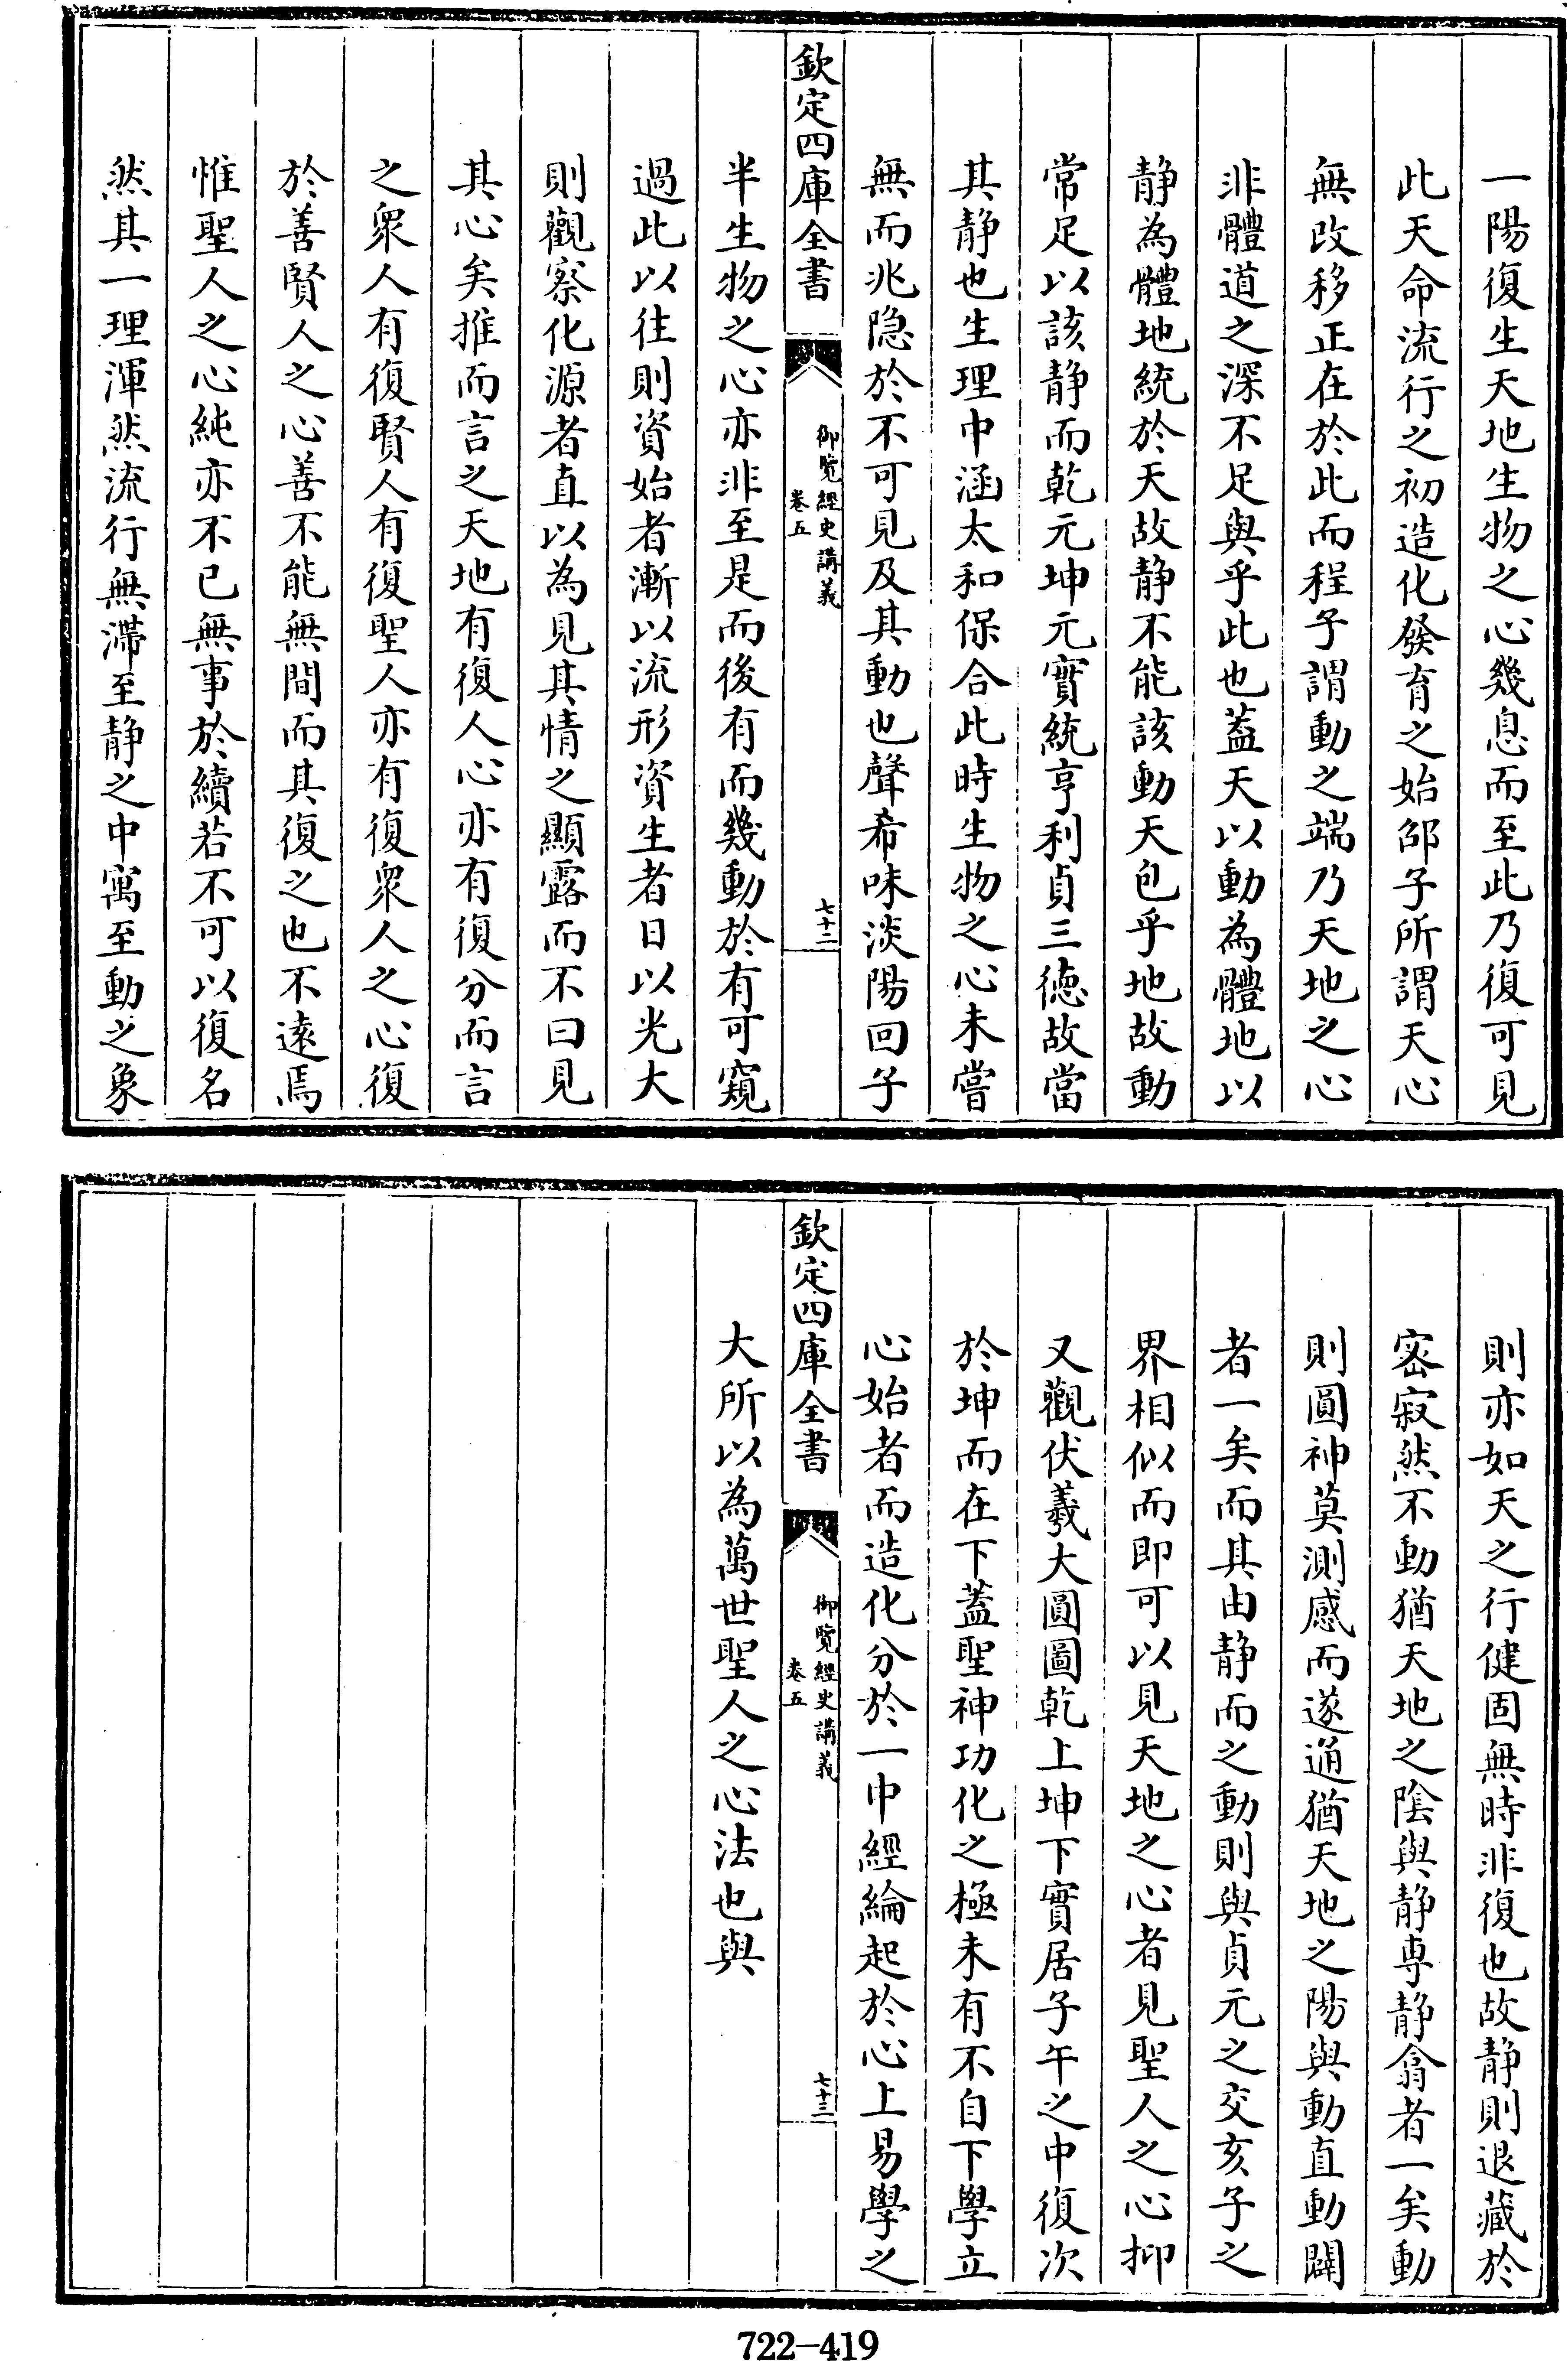 一陽復生天地生物之心幾息而至此乃復可見
此天命流行之初造化發育之始邵子所謂天心
無改移正在於此而程子謂動之端乃天地之心
非體道之深不足與乎此也葢天以動為體地以
静為體地統於天故静不能該動天包乎地故動
常足以該静而乾元坤元實統亨利貞三徳故當
其静也生理中涵太和保合此時生物之心未嘗
無而兆隐於不可見及其動也聲希味淡陽回子
欽定四庫全書
御覽經史講義
卷五
七十二
半生物之心亦非至是而後有而幾動於有可窺
過此以往則資始者漸以流形資生者日以光大
則觀察化源者直以為見其情之顯露而不曰見
其心矣推而言之天地有復人心亦有復分而言
之衆人有復賢人有復聖人亦有復衆人之心復
於善賢人之心善不能無間而其復之也不逺焉
惟聖人之心純亦不已無事於續若不可以復名
然其一理渾然流行無滯至静之中寓至動之象
則亦如天之行健固無時非復也故静則退藏於
宻寂然不動猶天地之陰與静専静翕者一矣動
則圓神莫測感而遂通猶天地之陽與動直動闢
者一矣而其由静而之動則與貞元之交亥子之
界相似而即可以見天地之心者見聖人之心抑
又觀伏羲大圓圖乾上坤下實居子午之中復次
於坤而在下蓋聖神功化之極未有不自下學立
心始者而造化分於一中經綸起於心上易學之
欽定四庫全書
御覽經史講義
卷五
七十三
大所以為萬世聖人之心法也與
722-419